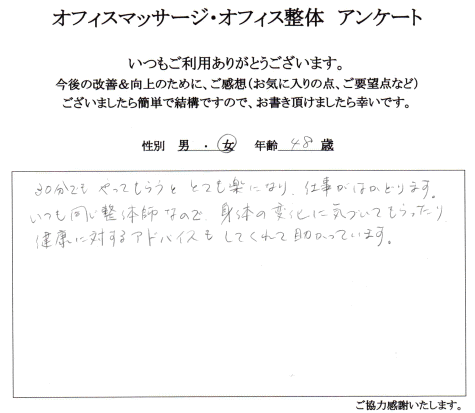 オフィスマッサージ・オフィス整体 アンケート
いつもご利用ありがとうございます。
今後の改善＆向上のために、ご感想（お気に入りの点、ご要望点など）
ございましたら簡単で結構ですので、お書き頂けましたら幸いです。
性別 男 ・ 女 年齢 48 歳
30分でも やってもらうと とても楽になり、仕事がはかどります。
いつも同じ整体師なので、身体の変化に気づいてもらったり
健康に対するアドバイスも してくれて助かっています。
ご協力感謝いたします。